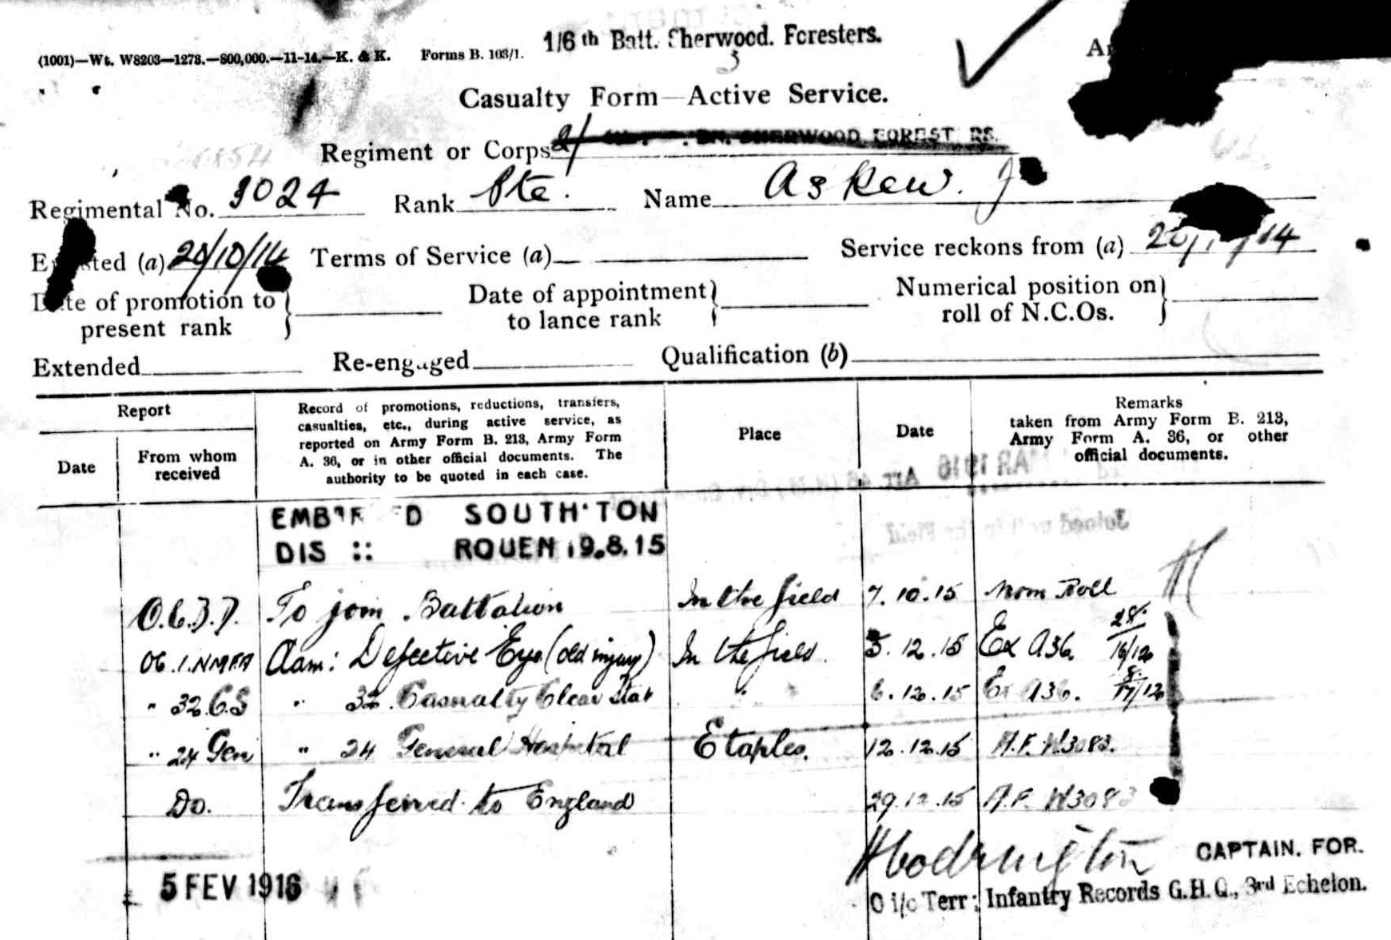 (1001)—Wt. W8203—1278.—800,000.—11-14.—K. & K. Forms B. 103/1. 1/6th Batt. Sherwood. Foresters.
3
Casualty Form—Active Service.
Regiment or Corps 2/ SHERWOOD FOREST RS.
Regimental No. 3024 Rank Pte. Name Askew. J
(a) 20/10/14 Terms of Service (a) Service reckons from (a) /14
Date of promotion to present rank Date of appointment to lance rank Numerical position on roll of N.C.Os.
Extended Re-engaged Qualification (b)
Report
Date
From whom received
Record of promotions, reductions, transfers, casualties, etc., during active service, as reported on Army Form B. 213, Army Form A. 36, or in other official documents. The authority to be quoted in each case.
Place
Date
Remarks taken from Army Form B. 213, Army Form A. 36, or other official documents.
SOUTH'TON
DIS :: ROUEN 19.8.15
To join Battalion In the field 7.10.15 Nom Roll
Adm: Defective Eye (old injury) In the field. 5.12.15 Ex A36. 28/16/12
" 32.C.S " 32. Casualty Clear Stat " 6.12.15 Ex A36. 8/17/12
" 24 Gen " 24 General Hospital Etaples. 12.12.15 A.F. W3083.
Do. Transferred to England 29.12.15 A.F. W3083
CAPTAIN. FOR.
5 FEV 1916
O i/c Terr: Infantry Records G.H.Q., 3rd Echelon.